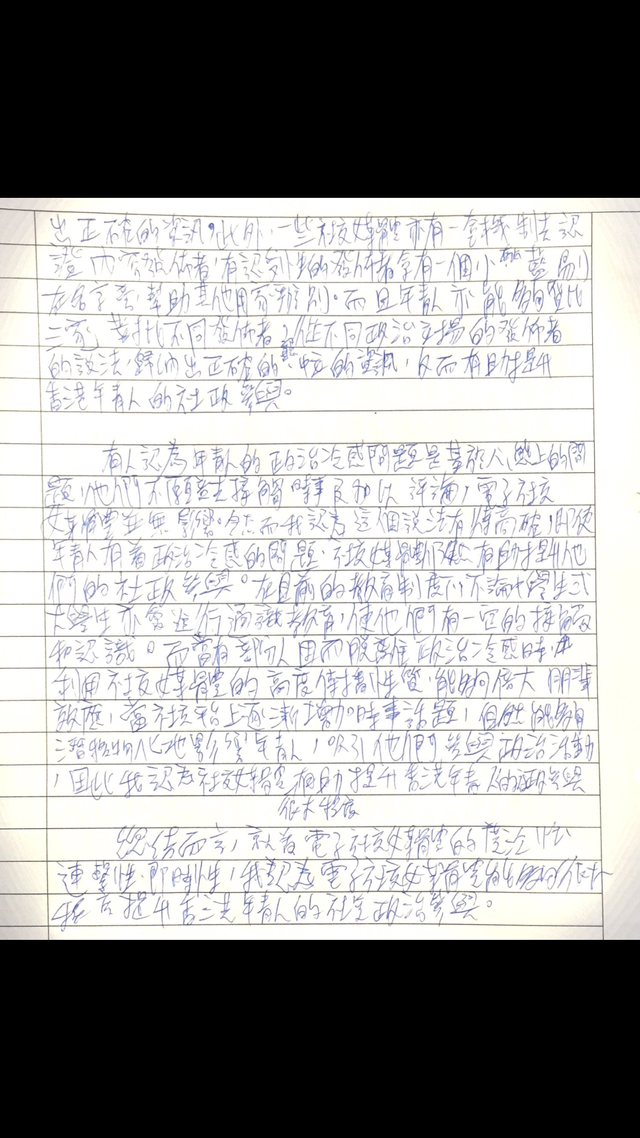 出正確的資訊。此外,一些社交媒體亦有一套機制去認
證內容發佈者,有認到的發佈者會有一個小藍剔
在名字旁,幫助其他用家辨別。而且年青人亦能夠貨比
三家,對比不同發佈者、不同政治立場的發佈者
的說法,歸納出正確的、中立的資訊,從而有助提升
香港年青人的社政參與。
有人認為年青人的政治冷感問題是基於人上的問
題,他們不願意接觸時事及加以評論,電子社交
媒體並無影響。然而我認為這個說法有待商確,即使
年青人有着政治冷感的問題,社交媒體仍然有助提升他
們的社政參與。在目前的教育制度下,不論中學生或
大學生亦會進行通識教育,使他們有一定的接觸
和認識。而當有部份人因而脫離政治冷感時,
利用社交媒體的高度傳播性質,能夠倍大朋輩
效應,當社交平台上逐漸增加時事話題,自然能夠
潛移物化地影響年青人,吸引他們參與政治活動
,因此我認為社交媒體有助提升香港年青人的社政參與
很大程度
總括而言,就着電子社交媒體的
連繫性、即時性,我認為電子社交媒體能夠很大
程度提升香港年青人的社會政治參與。